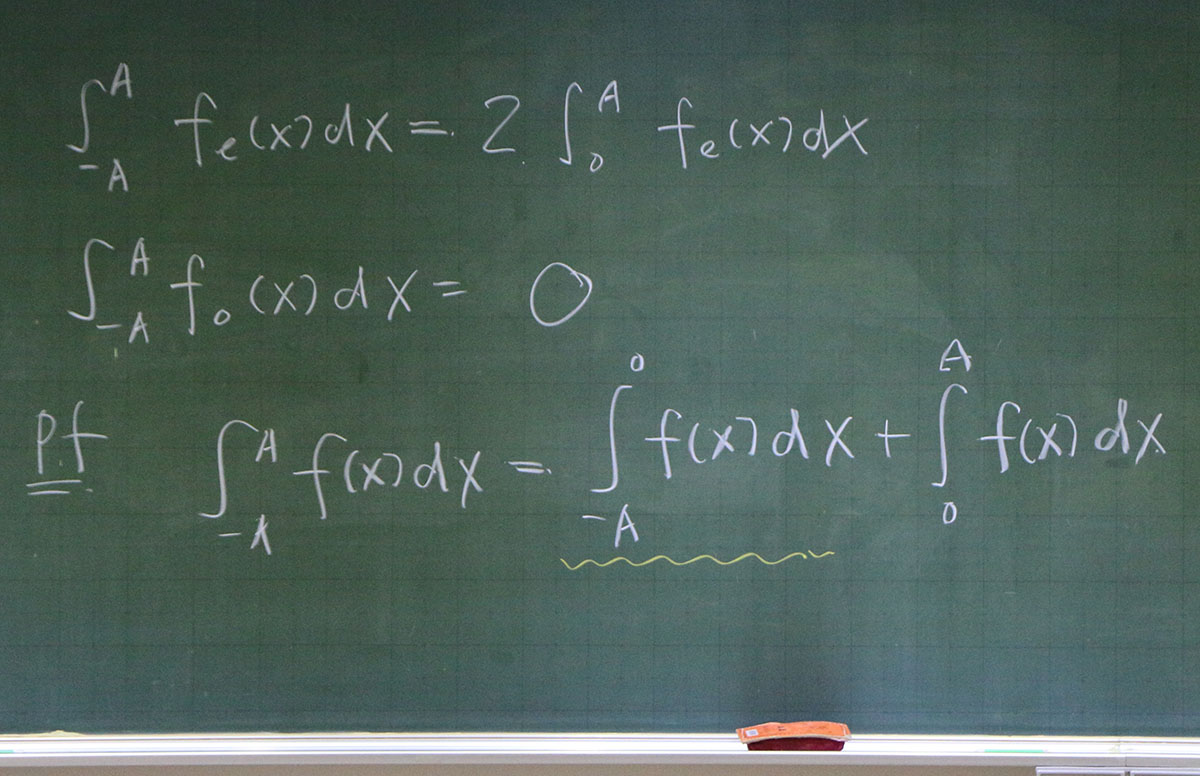 ∫_{-A}^{A} f_e(x)dx = 2 ∫_{0}^{A} f_e(x)dx
∫_{-A}^{A} f_o(x)dx = 0
P.f ∫_{-A}^{A} f(x)dx = ∫_{-A}^{0} f(x)dx + ∫_{0}^{A} f(x)dx